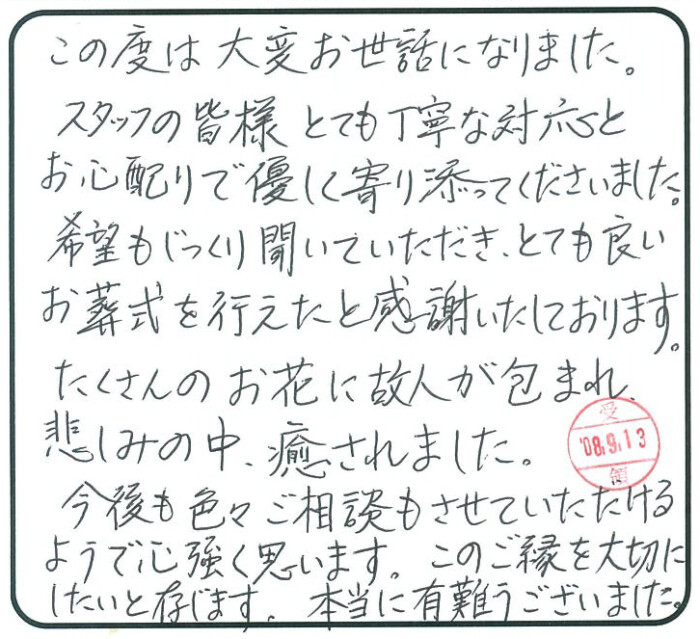 この度は大変お世話になりました。
スタッフの皆様とても丁寧な対応と
お心配りで優しく寄り添ってくださいました。
希望もじっくり聞いていただき、とても良い
お葬式を行えたと感謝いたしております。
たくさんのお花に故人が包まれ、
悲しみの中、癒されました。
受
'08.9.13
領
今後も色々ご相談もさせていただける
ようで心強く思います。このご縁を大切に
したいと存じます。本当に有難うございました。